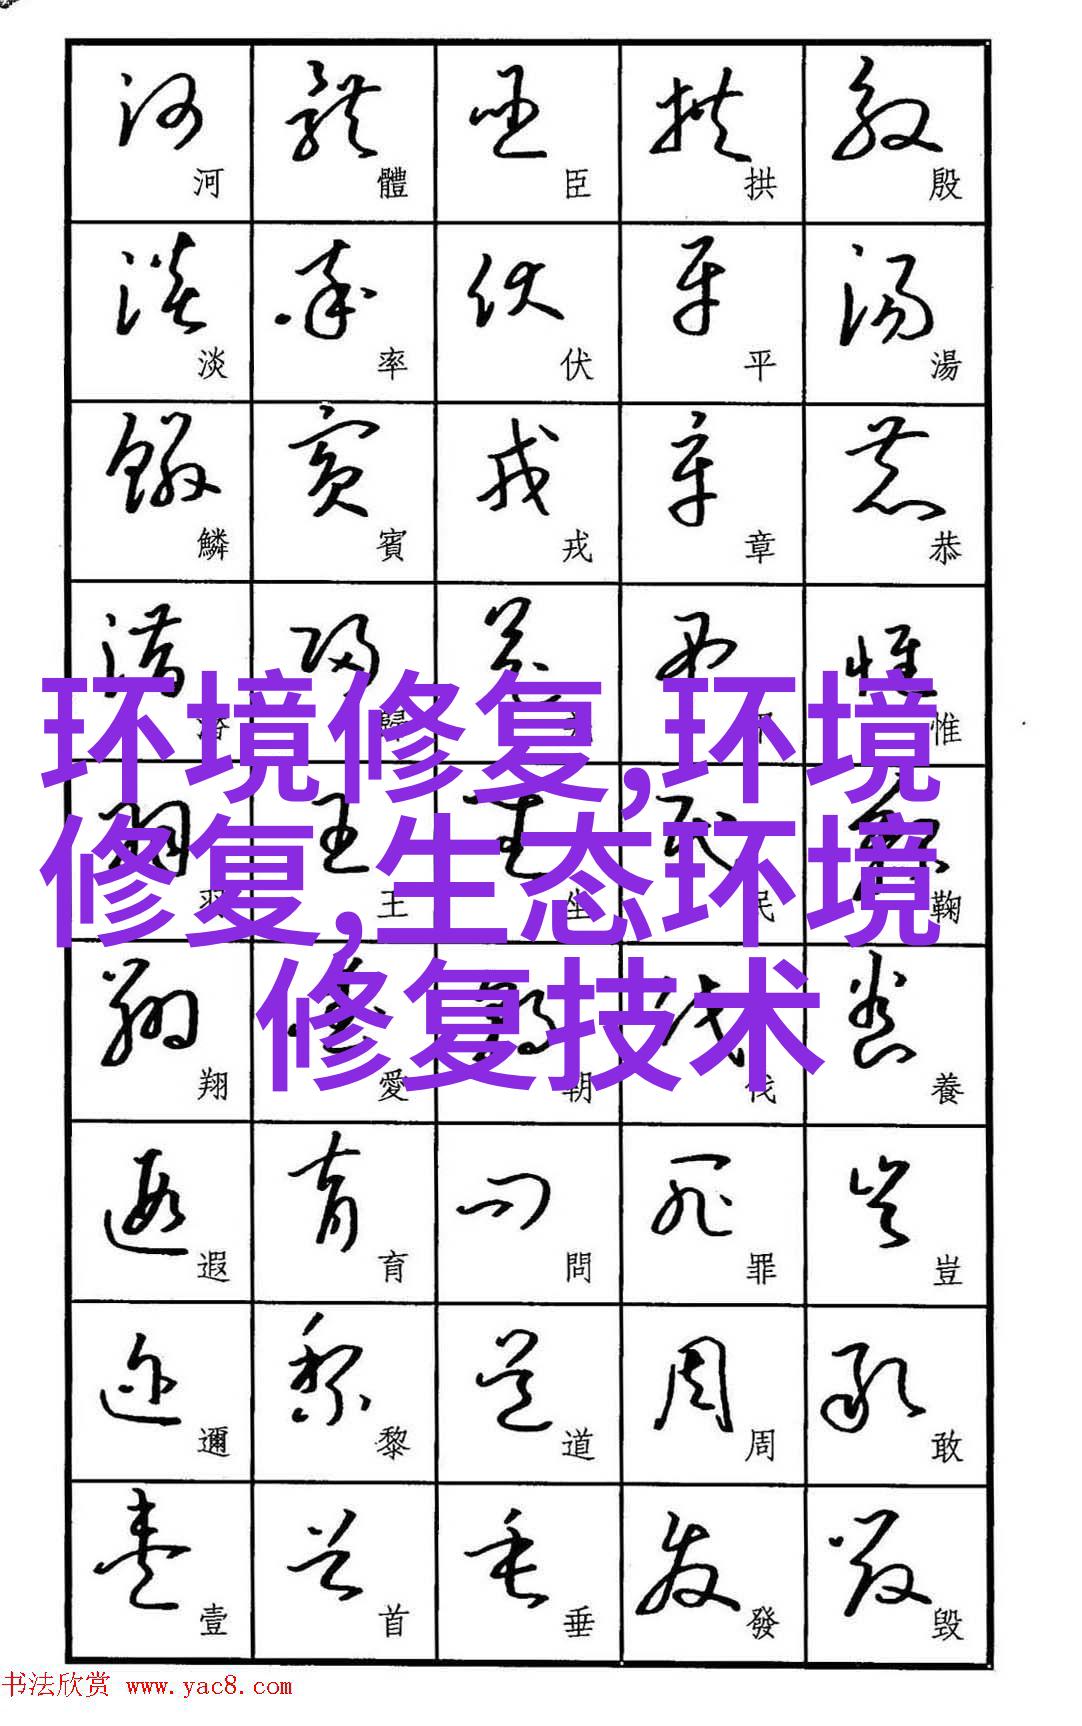 河淡鱗潛羽翔遐邇壹
體率賓歸王愛育黎首
臣伏戎羌坐朝問道垂
拱平章弔民伐罪周發
殷湯恭惟鞠養豈敢毀
环境修复,环境
修复,生态环境
修复技术
书法欣赏 www.yac8.com